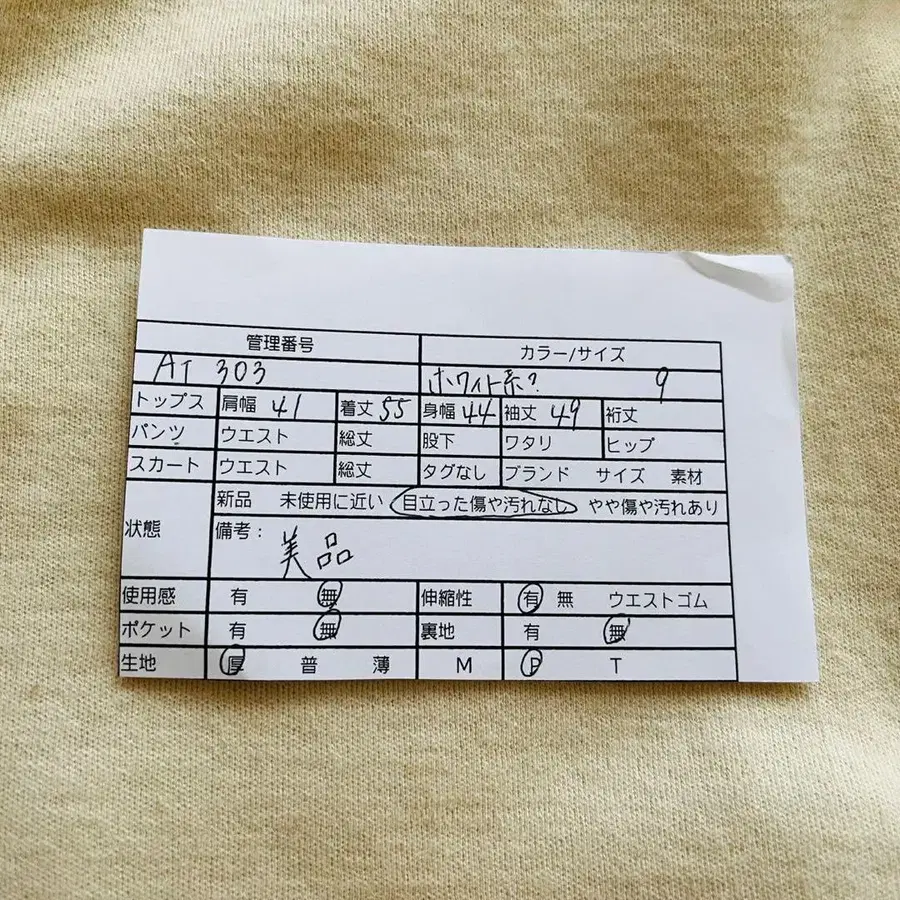 管理番号 カラー/サイズ
AT 303 ホワイト系? 9
トップス 肩幅 41 着丈 55 身幅 44 袖丈 49 裄丈
パンツ ウエスト 総丈 股下 ワタリ ヒップ
スカート ウエスト 総丈 タグなし ブランド サイズ 素材
状態 新品 未使用に近い 目立った傷や汚れなし やや傷や汚れあり
備考: 美品
使用感 有 無 伸縮性 有 無 ウエストゴム
ポケット 有 無 裏地 有 無
生地 厚 普 薄 M P T